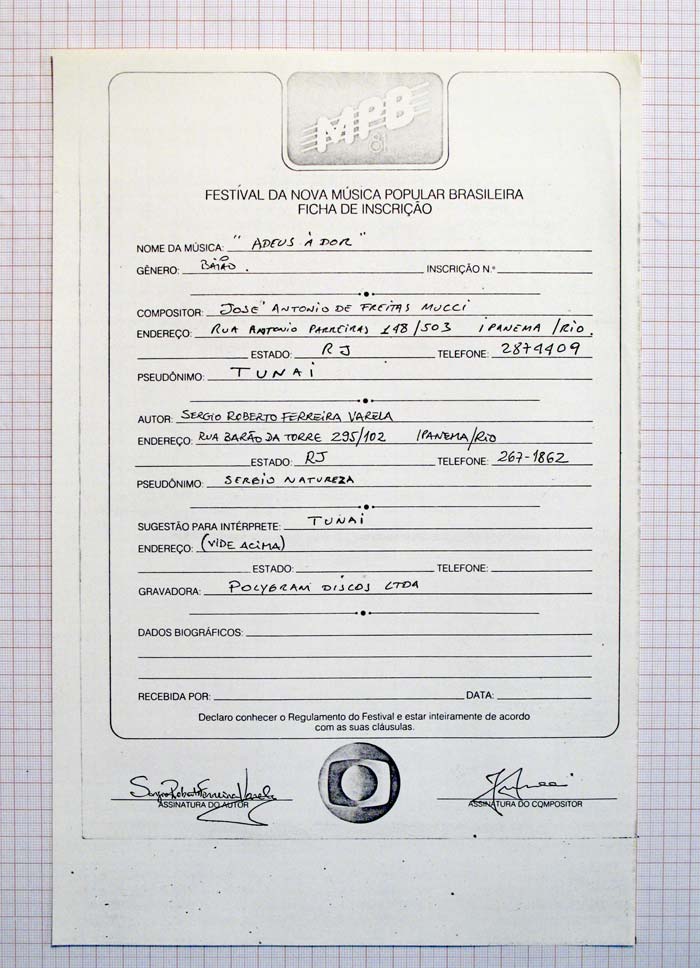 MPB
81
FESTÍVAL DA NOVA MÚSICA POPULAR BRASILEIRA
FICHA DE INSCRIÇÃO
NOME DA MÚSICA: "ADEUS À DOR"
GÊNERO: BAIÃO. INSCRIÇÃO N.º
COMPOSITOR: JOSÉ ANTONIO DE FREITAS MUCCI
ENDEREÇO: RUA ANTONIO PARREIRAS 148/503 IPANEMA/RIO.
ESTADO: RJ TELEFONE: 2874409
PSEUDÔNIMO: TUNAI
AUTOR: SERGIO ROBERTO FERREIRA VARELA
ENDEREÇO: RUA BARÃO DA TORRE 295/102 IPANEMA/RIO
ESTADO: RJ TELEFONE: 267-1862
PSEUDÔNIMO: SERGIO NATUREZA
SUGESTÃO PARA INTÉRPRETE: TUNAI
ENDEREÇO: (VIDE ACIMA)
ESTADO: TELEFONE:
GRAVADORA: POLYGRAM DISCOS LTDA
DADOS BIOGRÁFICOS:
RECEBIDA POR: DATA:
Declaro conhecer o Regulamento do Festival e estar inteiramente de acordo
com as suas cláusulas.
Sergio Roberto Ferreira Varela
ASSINATURA DO AUTOR ASSINATURA DO COMPOSITOR